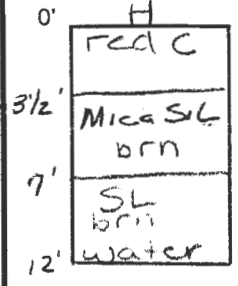 H
0'
red C
3 1/2'
Mica SiL
brn
7'
SL
brn
water
12'